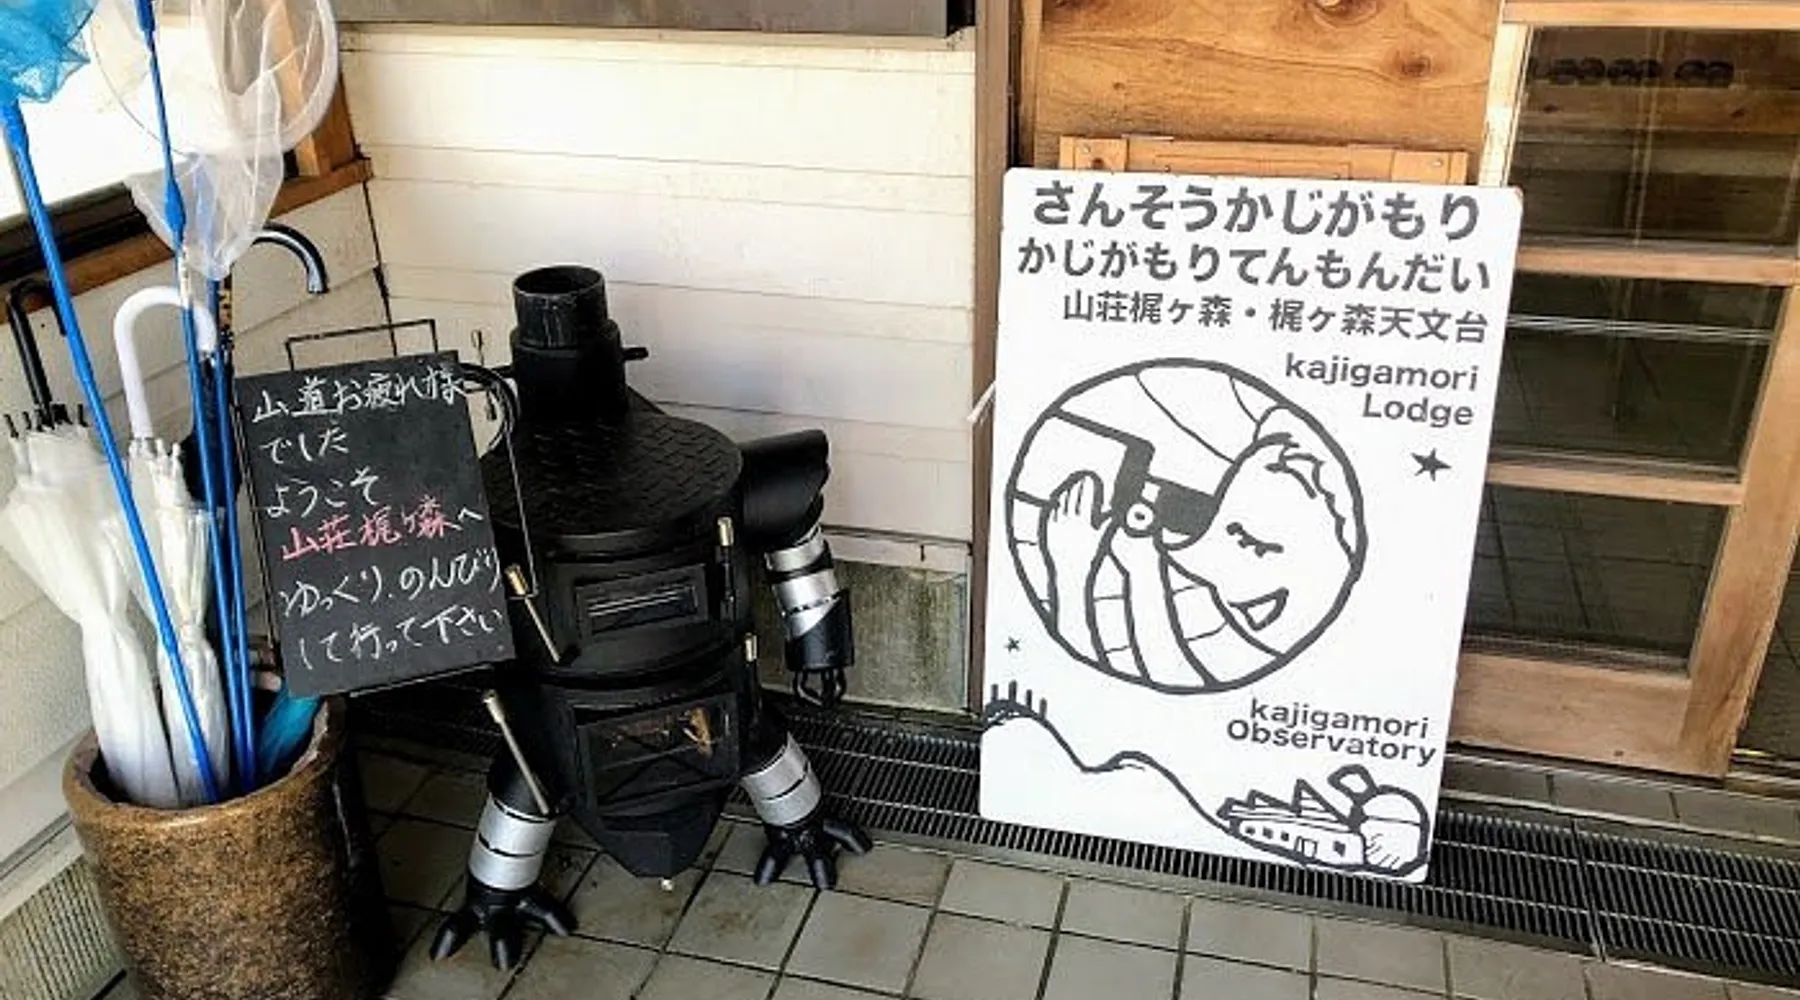 山道お疲れ様
でした
ようこそ
山荘梶ヶ森へ
ゆっくり、のんびり
して行って下さい
さんそうかじがもり
かじがもりてんもんだい
山荘梶ヶ森・梶ヶ森天文台
kajigamori
Lodge
kajigamori
Observatory